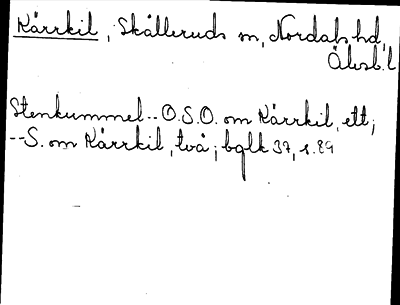 Kärrkil, Skålleruds sn, Nordals hd,
Älvsb. l
Stenkummel -- O.S.O. om Kärrkil, ett;
-- S. om Kärrkil, två; bqlk 37, s. 89